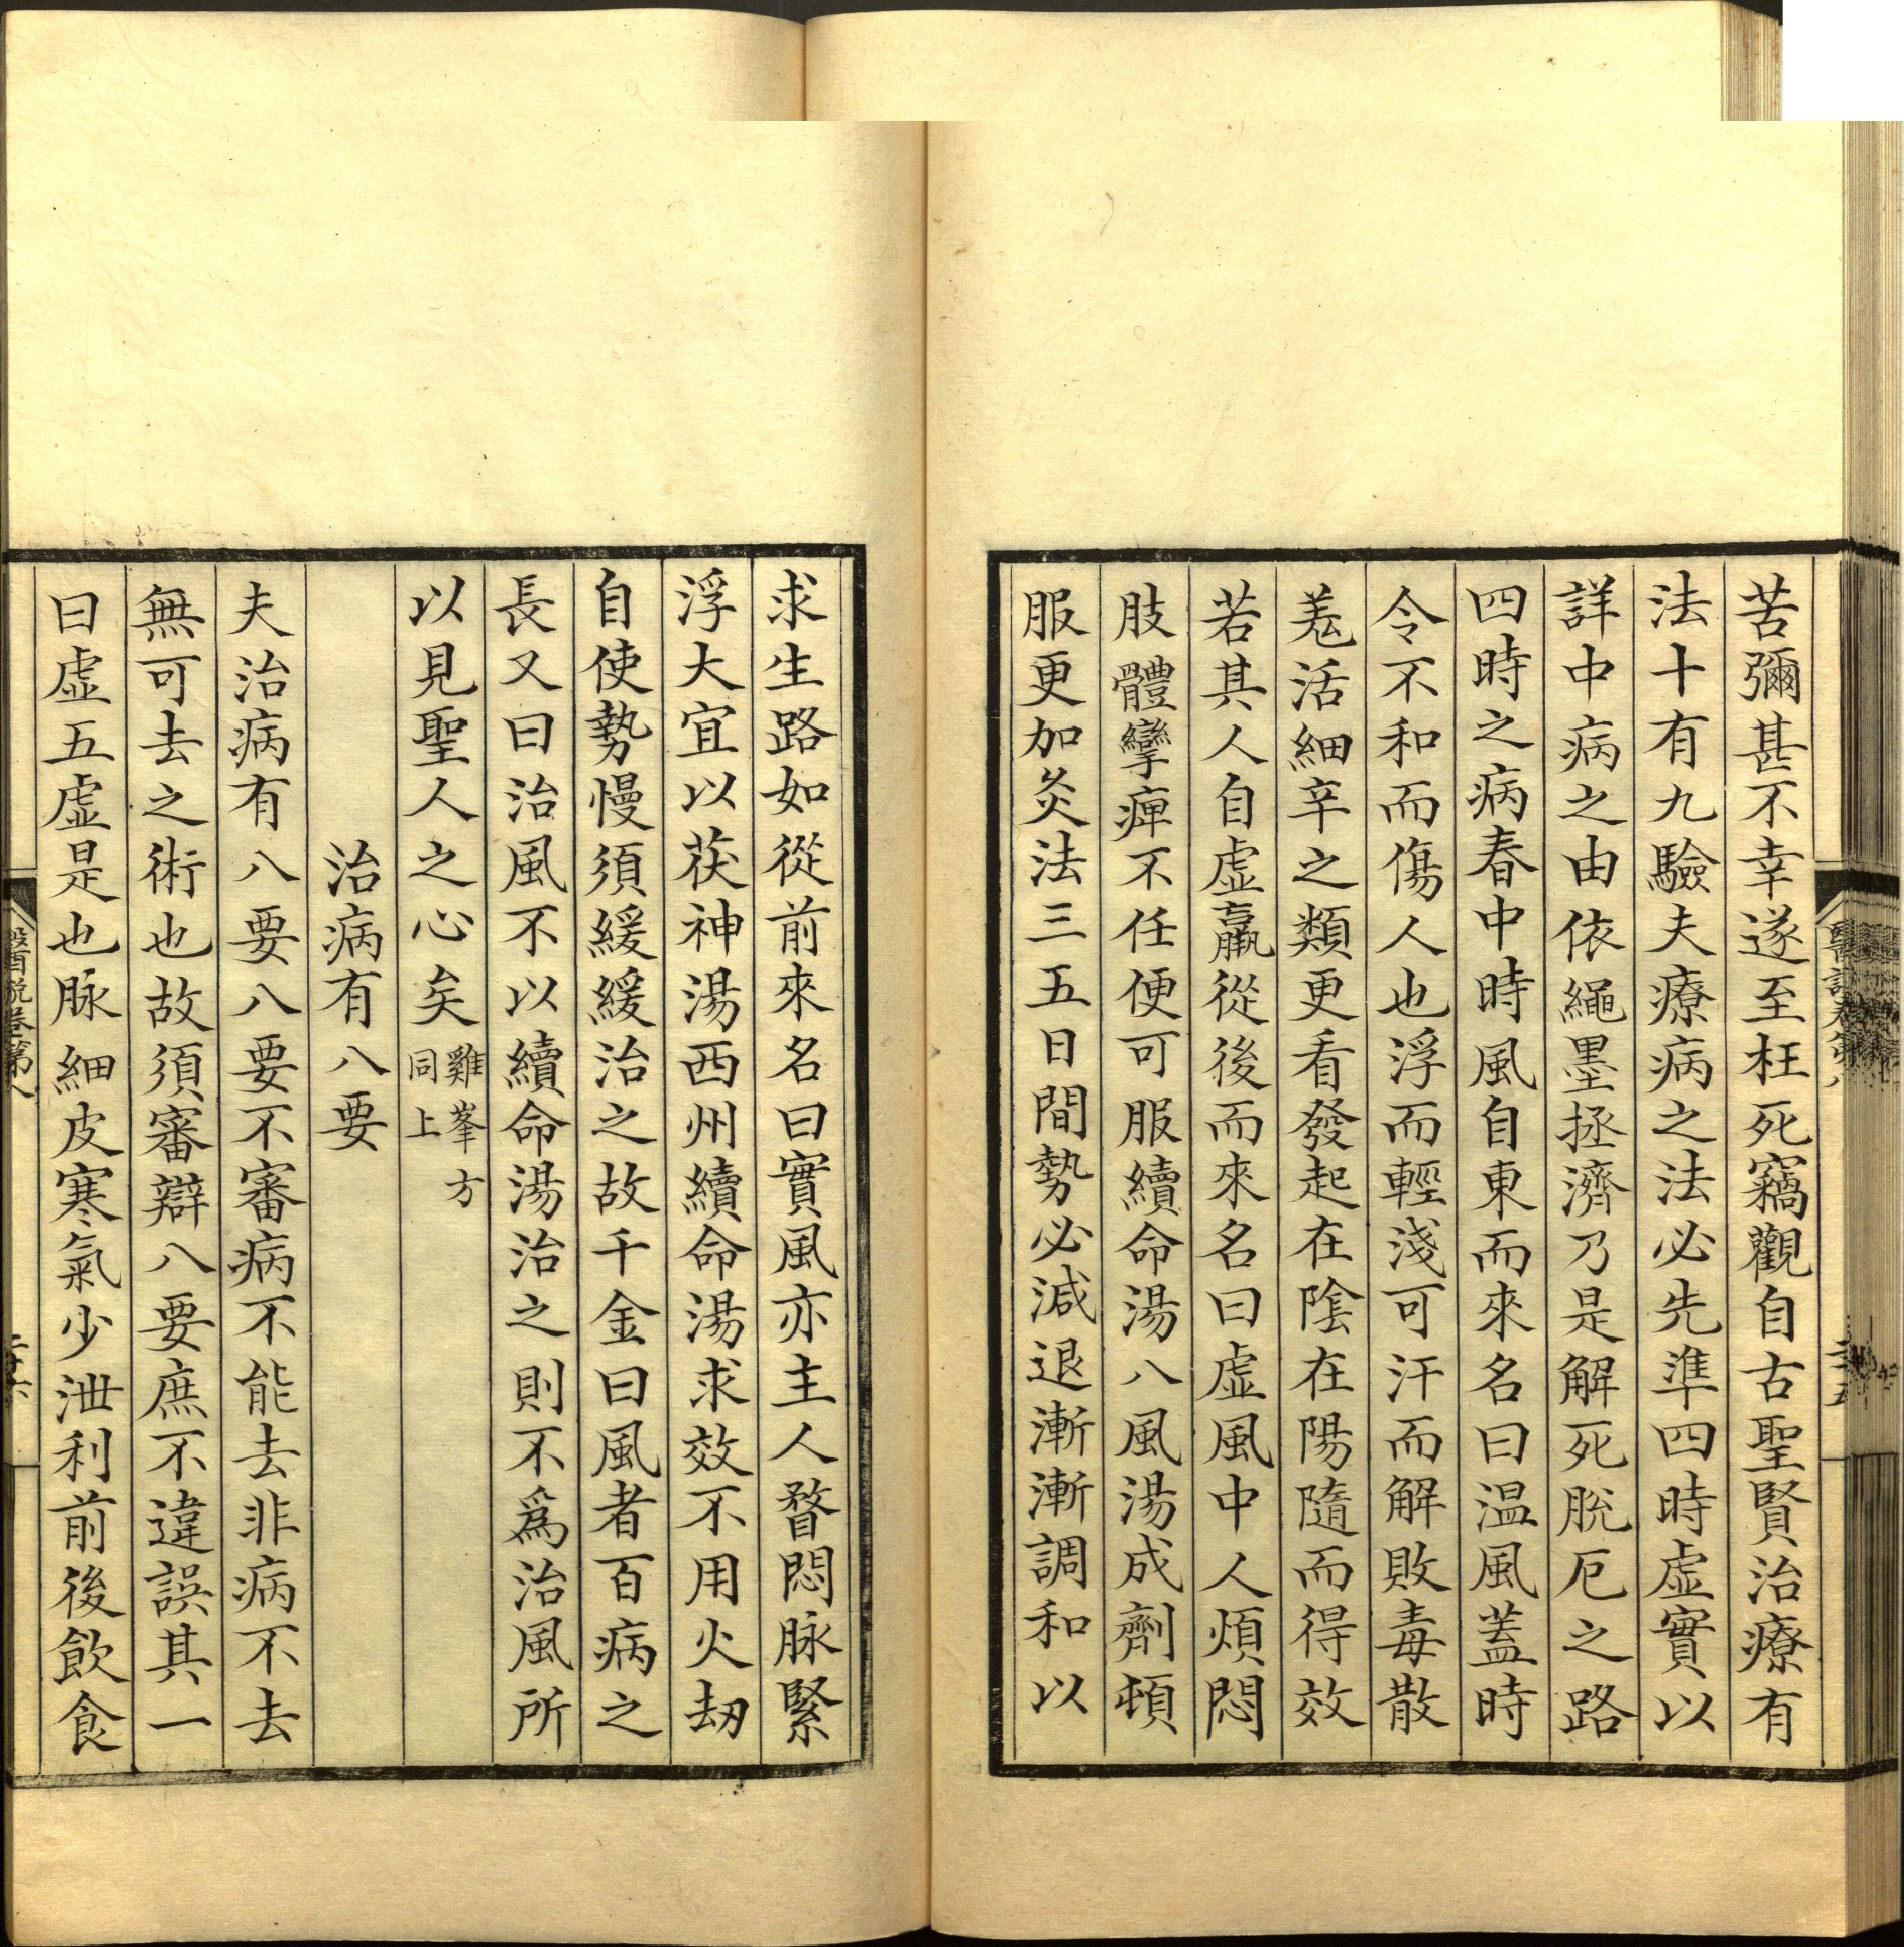 苦彌甚不幸遂至枉死竊觀自古聖賢治療有
法十有九驗夫療病之法必先準四時虛實以
詳中病之由依繩墨拯濟乃是解死脫厄之路
四時之病春中時風自東而來名曰温風蓋時
令不和而傷人也浮而輕淺可汗而解敗毒散
羗活細辛之類更看發起在陰在陽隨而得效
若其人自虛羸從後而來名曰虛風中人煩悶
肢體攣痺不任便可服續命湯八風湯成劑頓
服更加灸法三五日間勢必減退漸漸調和以
求生路如從前來名曰實風亦主人瞀悶脉緊
浮大宜以茯神湯西州續命湯求效不用火劫
自使勢慢須緩緩治之故千金曰風者百病之
長又曰治風不以續命湯治之則不爲治風所
以見聖人之心矣雞峯方
同上
治病有八要
夫治病有八要八要不審病不能去非病不去
無可去之術也故須審辯八要庶不違誤其一
曰虛五虛是也脉細皮寒氣少泄利前後飲食
醫說卷第八